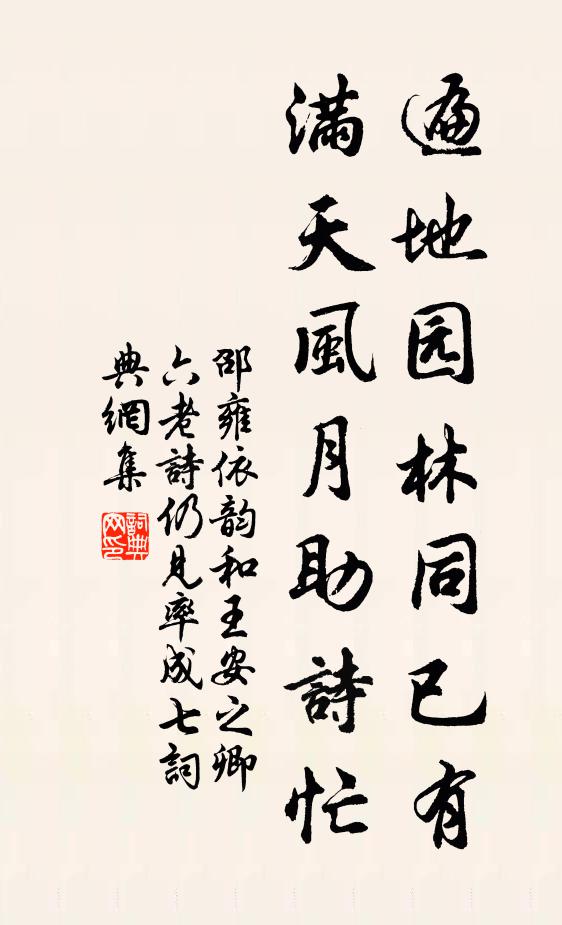 遍地园林同已有
满天風月助詩忙
邵雍依韵和王安之卿
六老詩仍見率成七詞
典網集
詞典网印